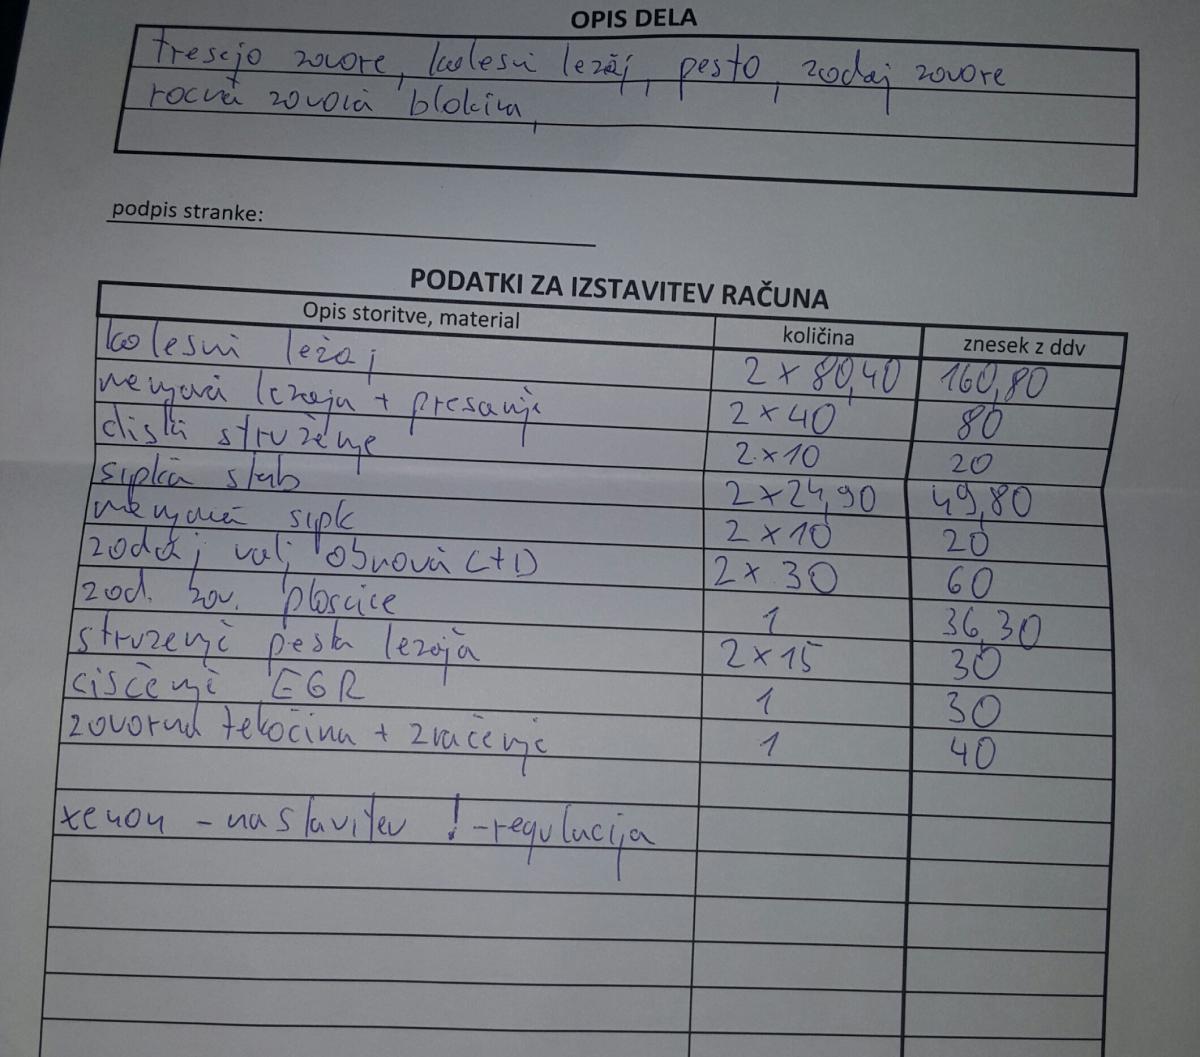 OPIS DELA
tresejo zavore, kolesni ležaj, pesto, zadaj zavore
ročna zavora blokira,
podpis stranke:
PODATKI ZA IZSTAVITEV RAČUNA
Opis storitve, material količina znesek z ddv
kolesni ležaj 2 x 80,40 160,80
menjava ležaja + presanje 2 x 40 80
diska struženje 2 x 10 20
sipka stab 2 x 24,90 49,80
menjava sipk 2 x 10 20
zadaj valj obnova L+D 2 x 30 60
zad. zav. ploscice 1 36,30
struzenje pesta lezaja 2 x 15 30
ciščenje EGR 1 30
zavorna tekočina + zračenje 1 40
xenon - nastavitev ! - regulacija